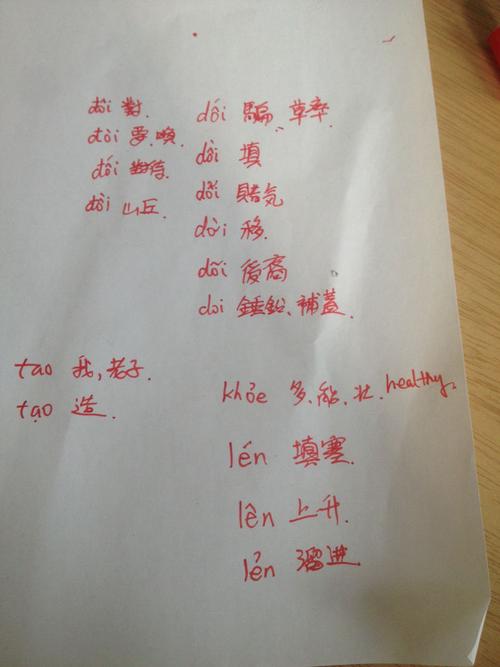 đôi 對.
đòi 要.喚.
đối 對待.
đồi 山丘.
dối 騙、草率.
dồi 填
dỗi 賭気
dời 移.
dõi 後裔
doi 錘鉛、補蓋.
tao 我,老子.
tạo 造.
khỏe 多.能.壯.healthy.
lén 填塞.
lên 上升.
lẻn 溜进.